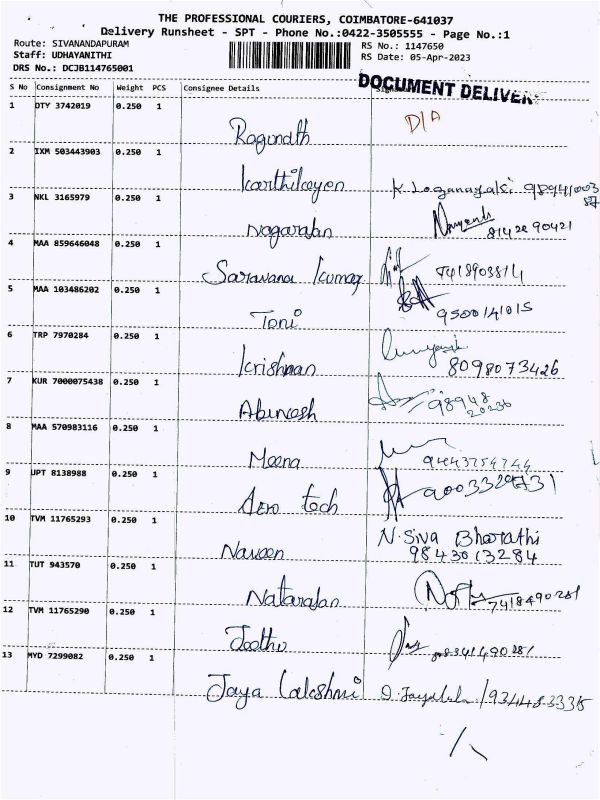 THE PROFESSIONAL COURIERS, COIMBATORE-641037
Delivery Runsheet - SPT - Phone No.:0422-3505555 - Page No.:1
Route: SIVANANDAPURAM RS No.: 1147650
Staff: UDHAYANITHI RS Date: 05-Apr-2023
DRS No.: DCJB114765001
DOCUMENT DELIVER
S No Consignment No Weight PCS Consignee Details
1 DTY 3742019 0.250 1
Ragunath D/A
2 IXM 503443903 0.250 1
Karthikeyen
3 NKL 3165979 0.250 1
Nagarajan 8142290421
4 MAA 859646048 0.250 1
Saravana Kumar 7418903814
5 MAA 103486202 0.250 1
Toni 9500141015
6 TRP 7970284 0.250 1
Krishnan 8098073426
7 KUR 7000075438 0.250 1
Abinesh 98948
20236
8 MAA 570983116 0.250 1
Meena
9 UPT 8138988 0.250 1
Aero tech
10 TVM 11765293 0.250 1
N. Siva Bharathi
Naveen 9843013284
11 TUT 943570 0.250 1
Natarajan 7418490281
12 TVM 11765290 0.250 1
Jothu
13 MYD 7299082 0.250 1
Jaya Lakshmi